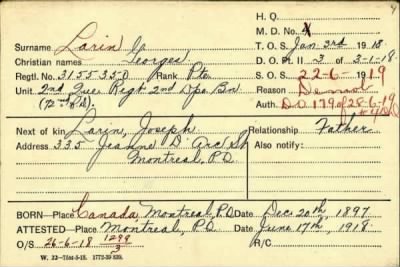 H. Q.
M. D. No. 4
Surname Larin
Christian names Georges
T. O. S. Jan 3rd 1918
Regtl. No. 3155350 Rank Pte
D. O. Pt. II 3 of 3-1-18
Unit 2nd Que Regt 2nd Dpo Bn
S. O. S. 22-6-1919
Reason Demob
Auth. D.O. 179 of 28-6-19
Next of kin Larin, Joseph
Relationship Father
Address 335 Jeanne D'Arc St
Also notify:
Montreal, P.Q.
BORN—Place Canada, Montreal, P.Q. Date Dec. 20th, 1897
ATTESTED—Place Montreal, P.Q. Date June 17th, 1918
O/S 26-6-18 1299/3 R/C